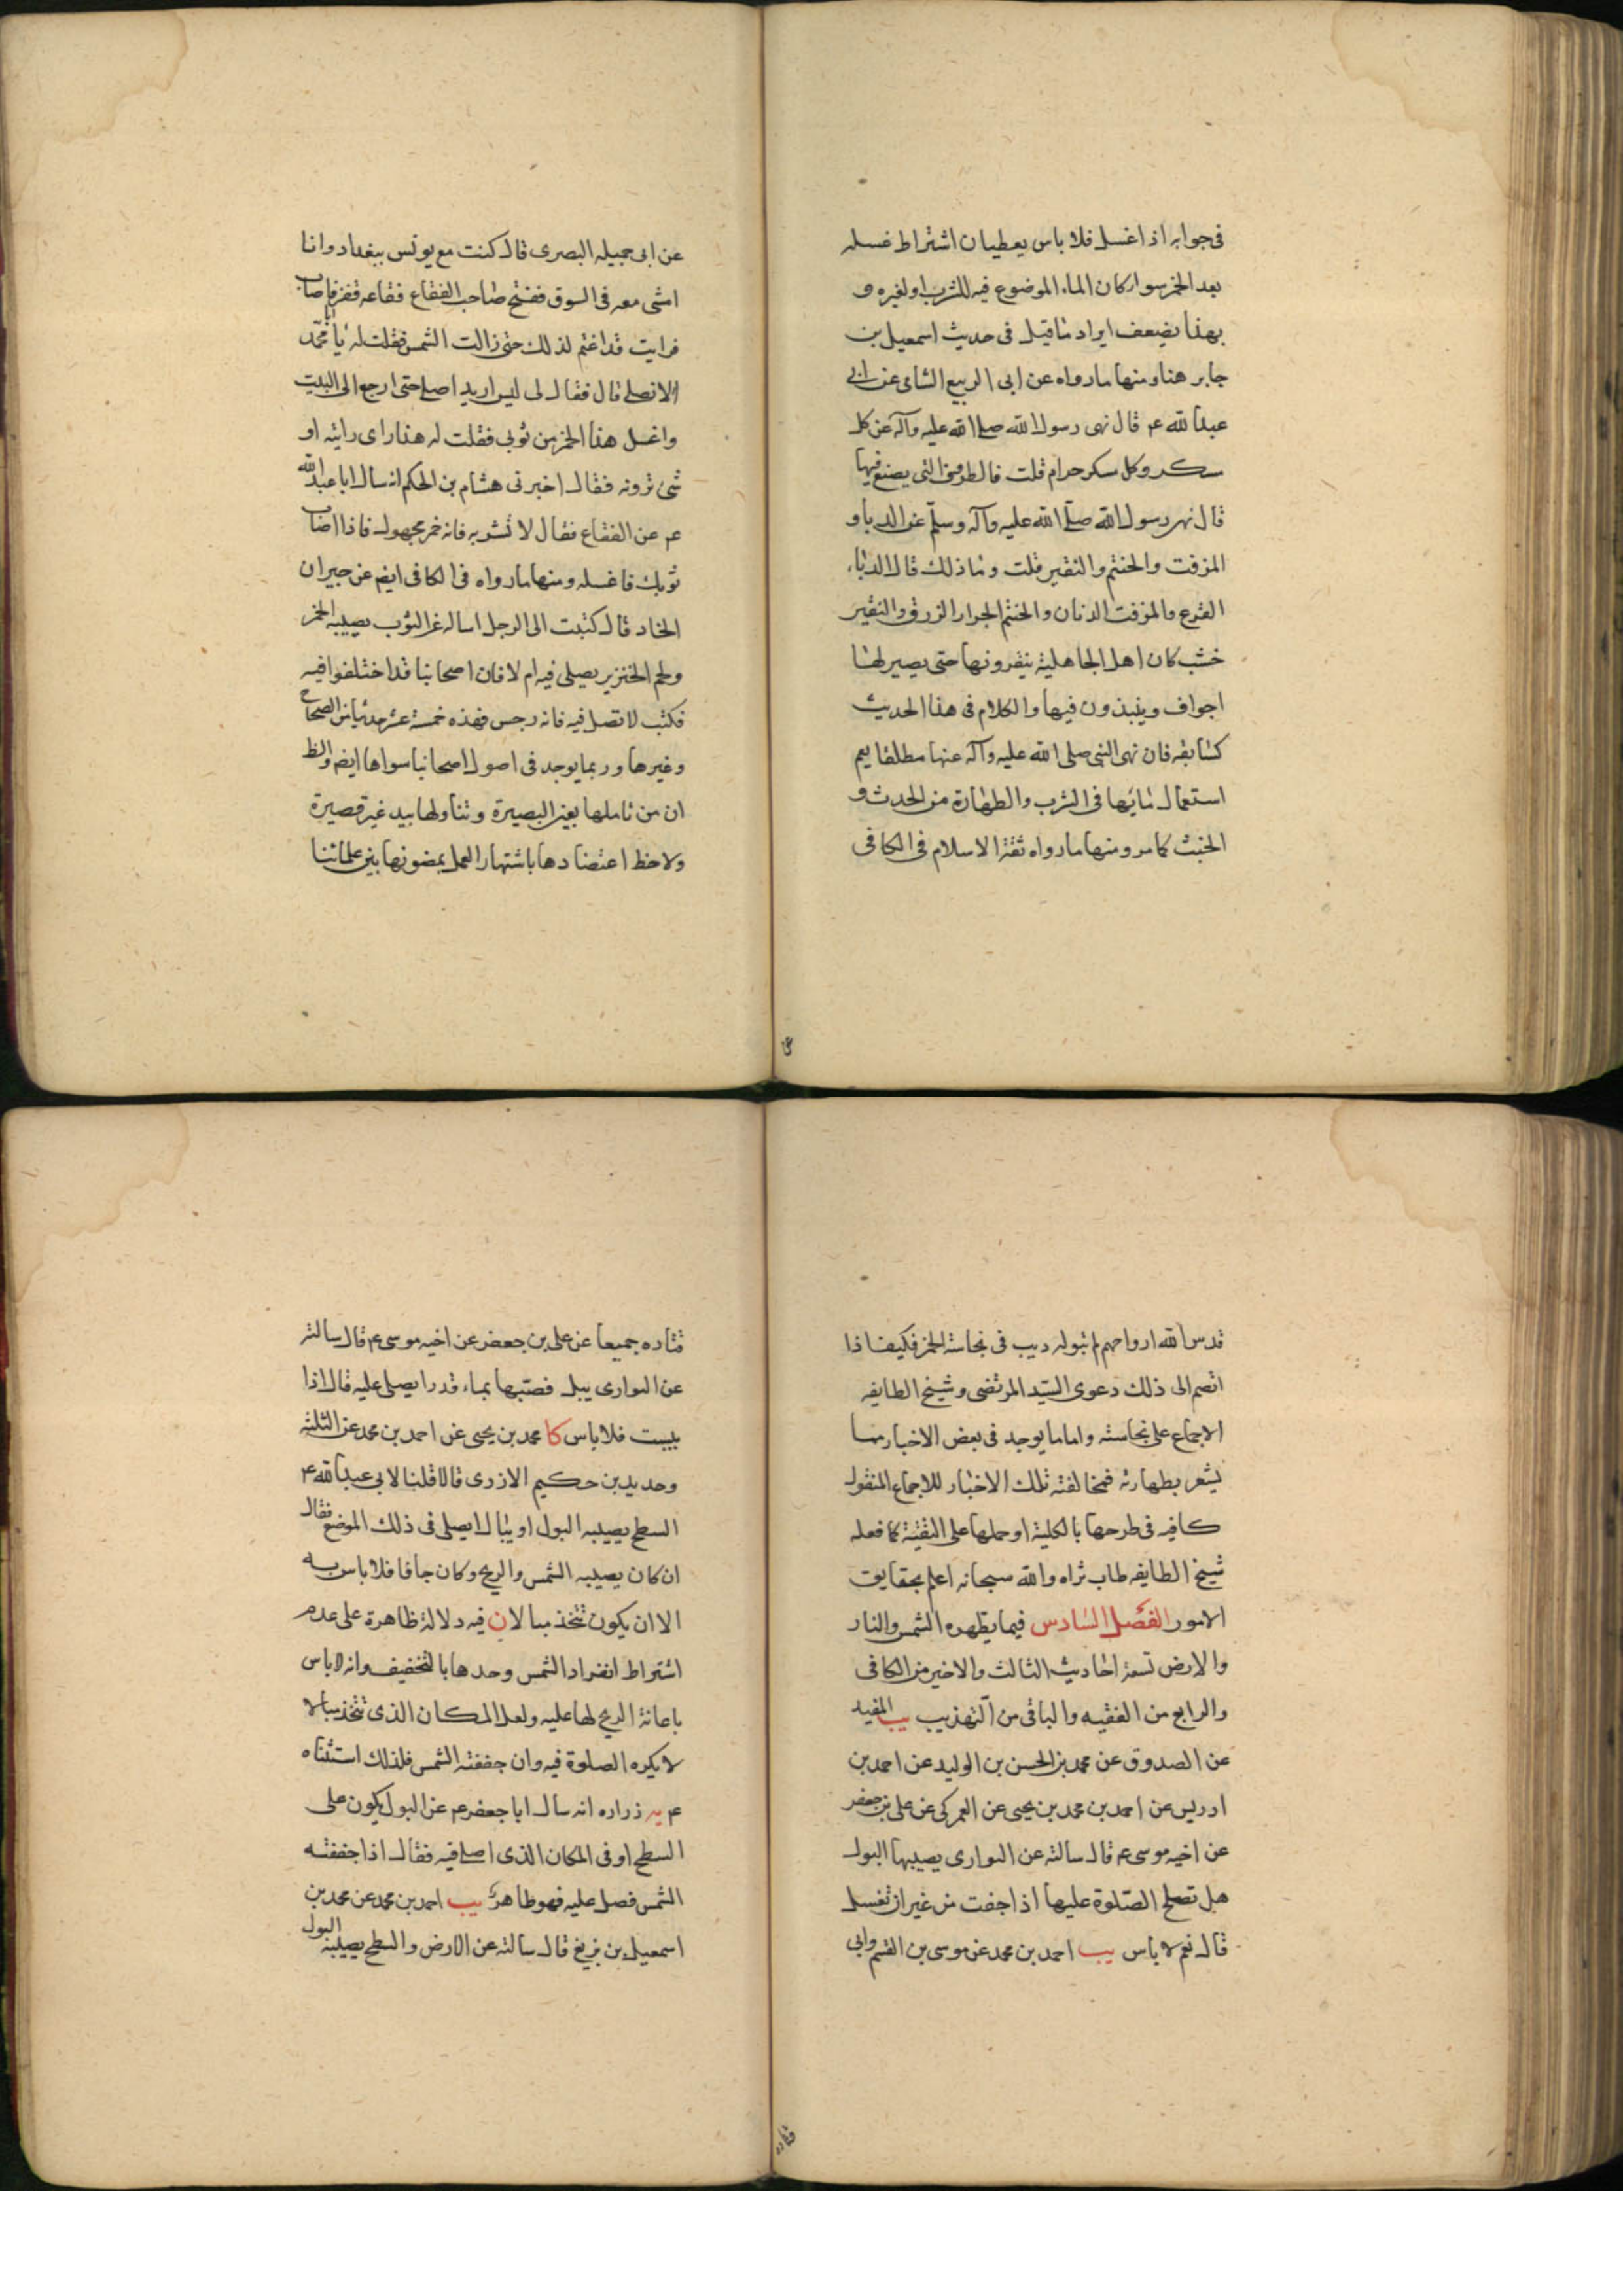 فى جوابه اذا غسل فلا باس يعطيان اشتراط غسله
بعد الخمر سوا كان الماء الموضوع فيه للشرب او لغيره و
بهذا يضعف ايراد ما قيل فى حديث اسمعيل بن
جابر هنا ومنها ما رواه عن ابى الربيع الشامى عن ابى
عبد الله ع قال نهى رسول الله صلى الله عليه وآله عن كل
مسكر وكل مسكر حرام قلت فالظروف التى يصنع فيها
قال نهى رسول الله صلى الله عليه وآله وسلم عن الدبا و
المزفت والحنتم والنقير قلت وما ذلك قال الدباء
القرع والمزفت الدنان والحنتم الجرار الزرق والنقير
خشب كان اهل الجاهلية ينقرونها حتى يصير لها
اجواف وينبذون فيها والكلام فى هذا الحديث
كسابقه فان نهى النبى صلى الله عليه وآله عنها مطلقا يعم
استعمال مائها فى الشرب والطهارة من الحدث و
الخبث كما مر ومنها ما رواه ثقة الاسلام فى الكافى
عن
عن ابى جميله البصرى قال كنت مع يونس ببغداد وانا
امشى معه فى السوق ففتح صاحب الفقاع فقاعه فقفز فاصاب
فرايت قد اغتم لذلك حتى زالت الشمس فقلت له يا ابا محمد
الا تصلى قال فقال لى ليس اريد اصلى حتى ارجع الى البيت
واغسل هذا الخمر من ثوبى فقلت له هذا راى رايته او
شئ ترونه فقال اخبرنى هشام بن الحكم انه سال ابا عبد الله
ع عن الفقاع فقال لا تشربه فانه خمر مجهول فاذا اصاب
ثوبك فاغسله ومنها ما رواه فى الكافى ايضا عن خيران
الخادم قال كتبت الى الرجل اساله عن الثوب يصيبه الخمر
ولحم الخنزير يصلى فيه ام لا فان اصحابنا قد اختلفوا فيه
فكتب لا تصل فيه فانه رجس فهذه خمسة عشر حديثا من الصحاح
وغيرها وربما يوجد فى اصول اصحابنا سواها ايضا والظ
ان من تاملها بعين البصيرة وتناولها بيد غير قصيرة
ولاحظ اعتضادها باشتهار العمل بمضمونها بين علمائنا
قدس الله ارواحهم لم يبق له ريب فى نجاسة الخمر فكيف اذا
انضم الى ذلك دعوى السيد المرتضى وشيخ الطايفه
الاجماع على نجاسته واما ما يوجد فى بعض الاخبار مما
يشعر بطهارته فمخالفة تلك الاخبار للاجماع المنقول
كافيه فى طرحها بالكلية او حملها على التقية كما فعله
شيخ الطايفه طاب ثراه والله سبحانه اعلم بحقايق
الامور الفصل السادس فيما يطهره الشمس والنار
والارض تسعة احاديث الثالث والاخير من الكافى
والرابع من الفقيه والباقى من التهذيب يب المفيد
عن الصدوق عن محمد بن الحسن بن الوليد عن احمد بن
ادريس عن احمد بن محمد بن يحيى عن العمركى عن على بن جعفر
عن اخيه موسى ع قال سالته عن البوارى يصيبها البول
هل تصلح الصلوة عليها اذا جفت من غير ان تغسل
قال نعم لا باس يب احمد بن محمد عن موسى بن القسم وابى
قتاده
قتاده جميعا عن على بن جعفر عن اخيه موسى ع قال سالته
عن البوارى يبل قصبها بماء قذر ايصلى عليه قال اذا
يبست فلا باس كا محمد بن يحيى عن احمد بن محمد عن الثلثه
وحديد بن حكيم الازدى قالا قلنا لابى عبد الله ع
السطح يصيبه البول او يبال ايصلى فى ذلك الموضع فقال
ان كان يصيبه الشمس والريح وكان جافا فلا باس به
الا ان يكون يتخذ مبالا ن فيه دلالة ظاهرة على عدم
اشتراط انفراد الشمس وحدها بالتجفيف وانه لا باس
باعانة الريح لها عليه ولعل المكان الذى يتخذ مبالا
لا يكره الصلوة فيه وان جففته الشمس فلذلك استثناه
ع يه زراره انه سال ابا جعفر ع عن البول يكون على
السطح او فى المكان الذى اصلى فيه فقال اذا جففته
الشمس فصل عليه فهو طاهر يب احمد بن محمد عن محمد بن
اسمعيل بن بزيع قال سالته عن الارض والسطح يصيبه البول